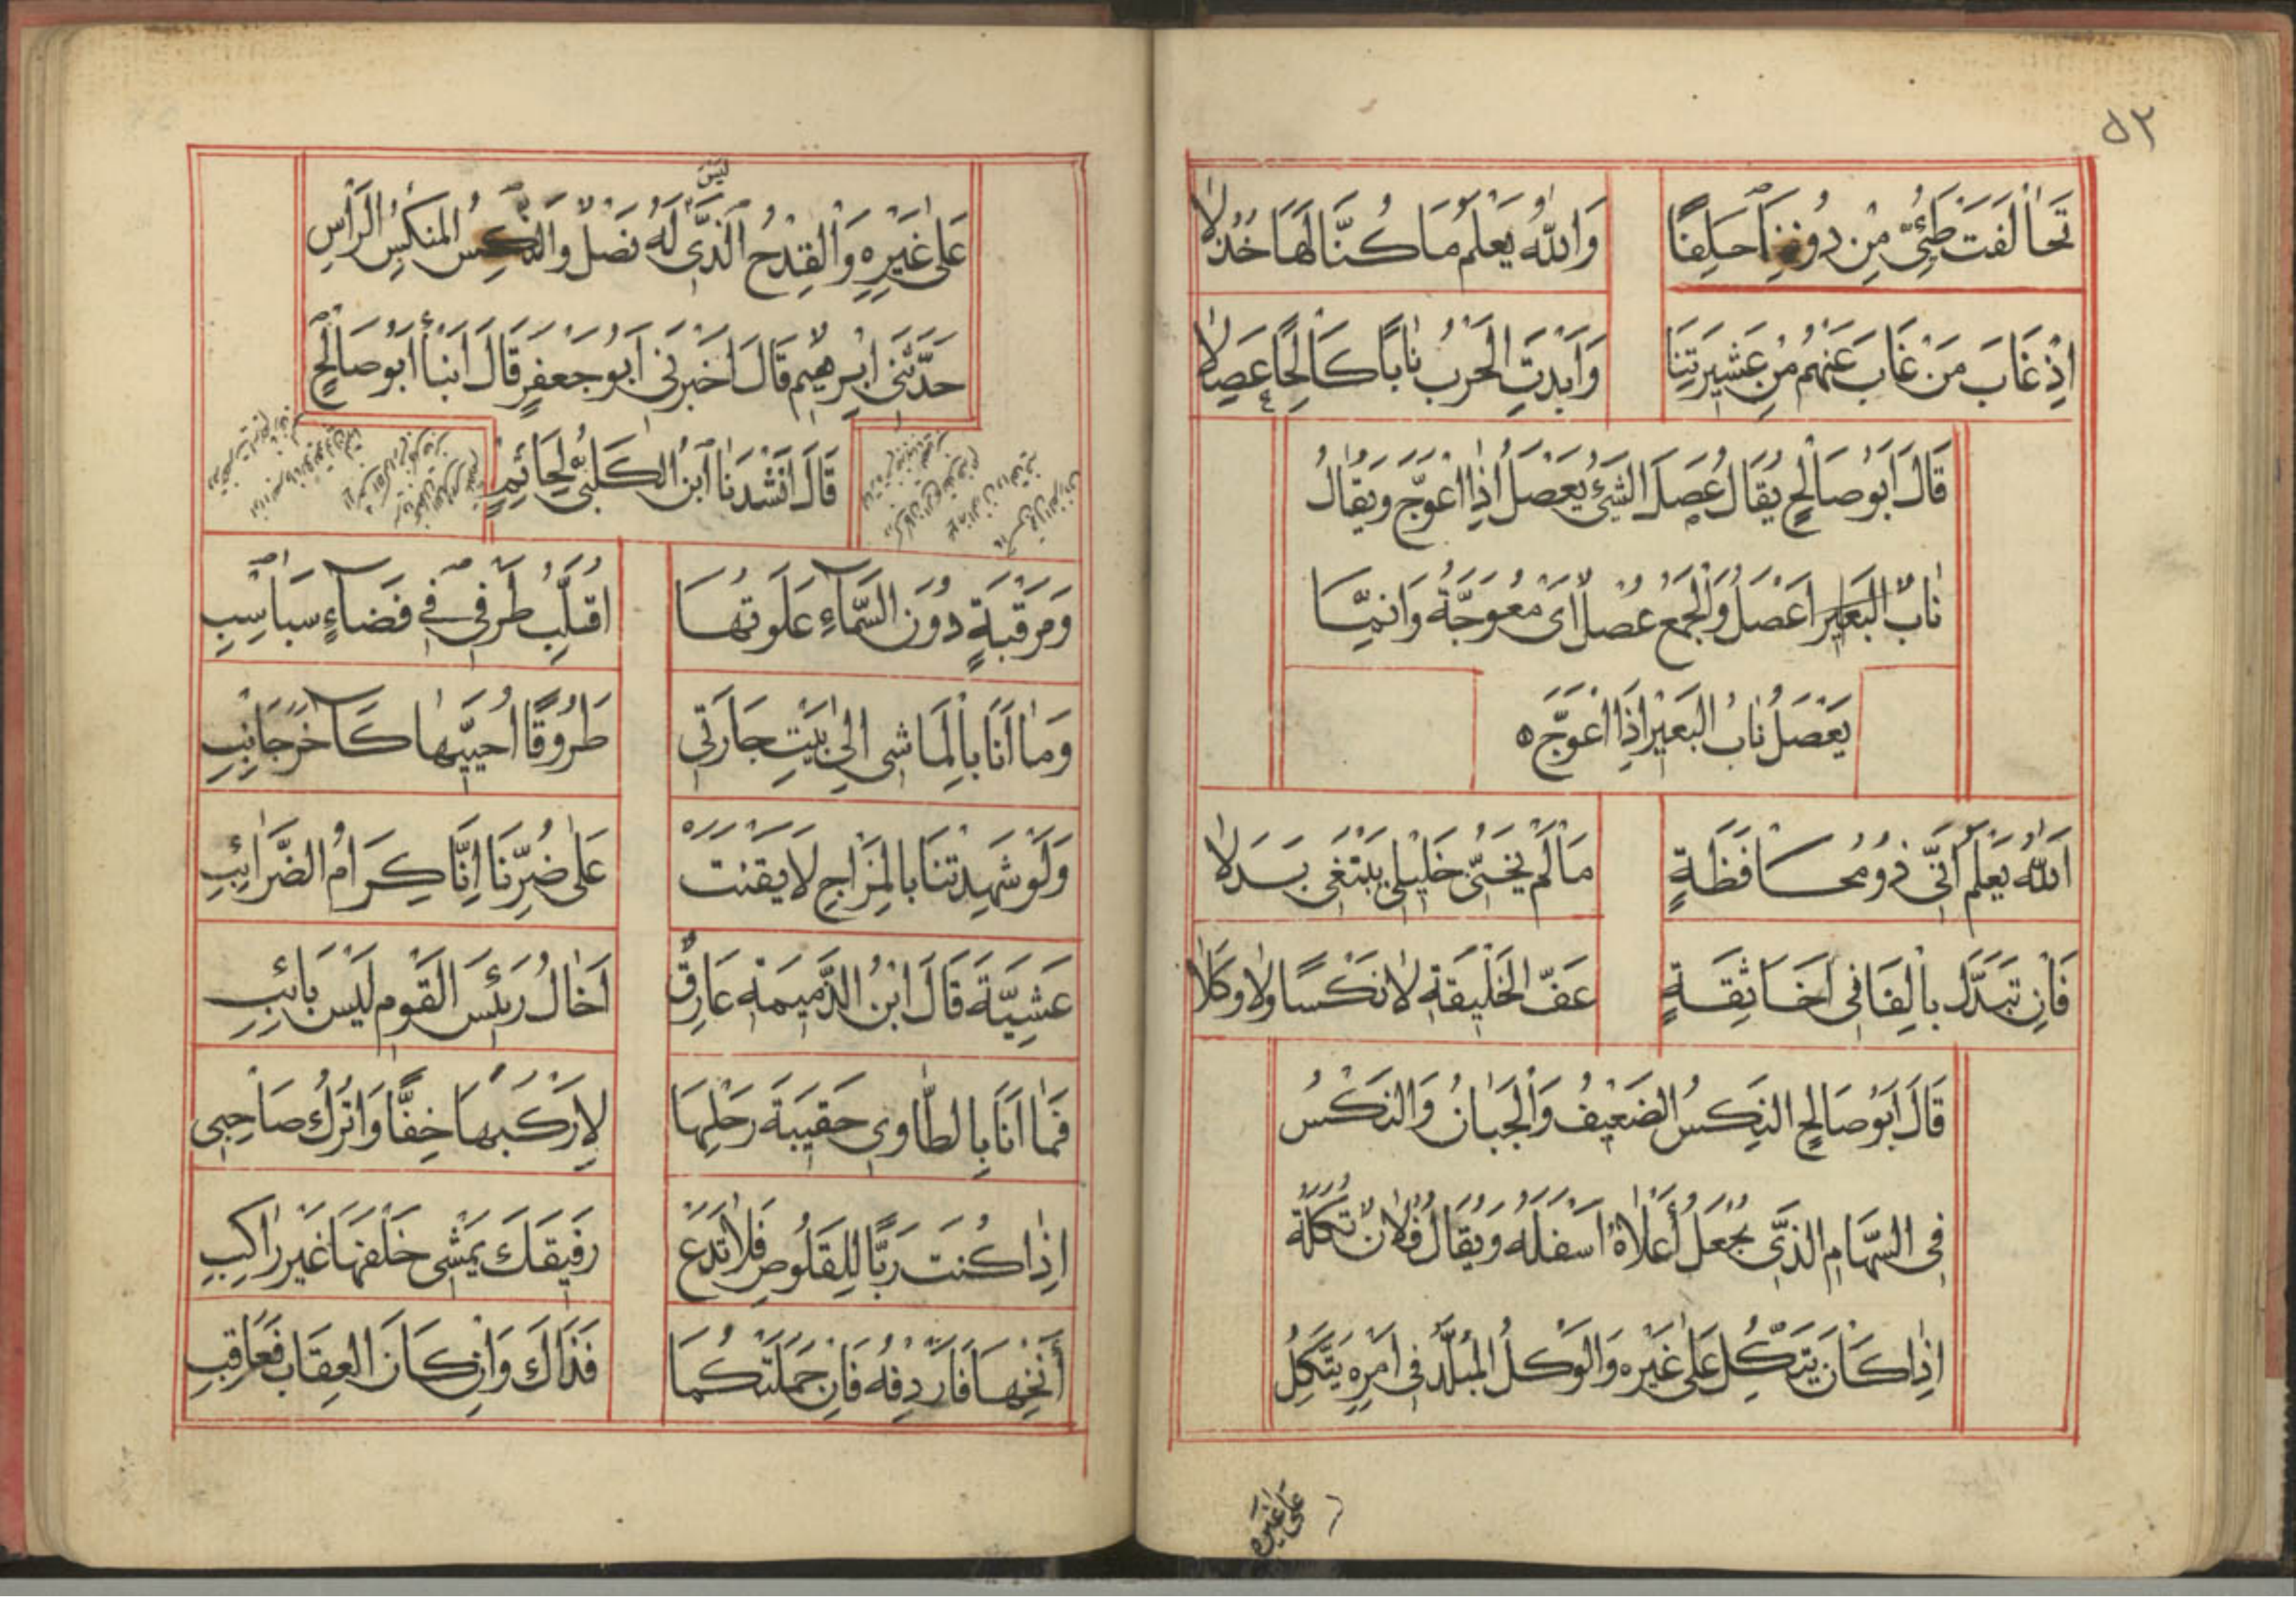 ٥٣
تَحَالَفَتْ طَيِّئٌ مِنْ دُونِنَا حِلِفًا وَاللهُ يَعْلَمُ مَا كُنَّا لَهَا خُذُلَا
اِذْ غَابَ مَنْ غَابَ عَنْهُمْ مِنْ عَشِيرَتِنَا وَاَبْدَتِ الْحَرْبُ نَابًا كَالِحًا عَصِلَا
قَالَ اَبُو صَالِحٍ يُقَالُ عَصِلَ الشَّيْءُ يَعْصَلُ اِذَا اعْوَجَّ وَيُقَالُ
نَابُ الْبَعِيرِ اَعْصَلُ وَالْجَمْعُ عُصْلٌ اَىْ مُعْوَجَّةٌ وَاِنَّمَا
يَعْصَلُ نَابُ الْبَعِيرِ اِذَا اعْوَجَّ ٥
اَللهُ يَعْلَمُ اَنِّى ذُو مُحَافَظَةٍ مَا لَمْ يَخُنِّى خَلِيلِى يَبْتَغِى بَدَلَا
فَاِنْ تَبَدَّلَ بَالِفَانِى اَخَا ثِقَةٍ عَفَّ الْخَلِيقَةِ لَا نِكْسًا وَلَا وَكَلَا
قَالَ اَبُو صَالِحٍ النِّكْسُ الضَّعِيفُ وَالْجَبَانُ وَالنِّكْسُ
فِى السِّهَامِ الَّذِى يُجْعَلُ أَعْلَاهُ اَسْفَلَهُ وَيُقَالُ فُلَانٌ تُكَلَةٌ
اِذَا كَانَ يَتَّكِلُ عَلَى غَيْرِهِ وَالْوَكَلُ الْمُبَلَّدُ فِى اَمْرِهِ يَتَّكِلُ
عَلَى غَيْرِهِ
لَيْسَ
عَلَى غَيْرِهِ وَالْقِدْحُ الَّذِى لَهُ نَصْلٌ وَالنِّكْسُ الْمُنَكَّسُ الرَّأْسِ
حَدَّثَنِى اِبْرَهِيمُ قَالَ اَخْبَرَنِى اَبُو جَعْفَرٍ قَالَ اَنْبَأَ اَبُو صَالِحٍ
قَالَ اَنْشَدَنَا ابْنُ الْكَلْبِىِّ لِحَاتِمٍ
وَمَرْقَبَةٍ دُونَ السَّمَاءِ عَلَوْتُهَا اُقَلِّبُ طَرْفِى فِى فَضَاءٍ سَبَاسِبِ
وَمَا اَنَا بِالْمَاشِى اِلَى بَيْتِ جَارَتِى طَرُوقًا اُحَيِّيهَا كَآخَرَ جَانِبِ
وَلَوْ شَهِدَتْنَا بِالْمِزَاحِ لَاَيْقَنَتْ عَلَى ضُرِّنَا اِنَّا كِرَامُ الضَّرَائِبِ
عَشِيَّةَ قَالَ ابْنُ الذَّمِيمَةِ عَارِقٌ اَخَالُ رَئِيسَ الْقَوْمِ لَيْسَ بَائِبِ
فَمَا اَنَا بِالطَّاوِى حَقِيبَةَ رَحْلِهَا لِاَرْكَبَهَا خِفًّا وَاَتْرُكَ صَاحِبِى
اِذَا كُنْتَ رَبًّا لِلْقَلُوصِ فَلَا تَدَعْ رَفِيقَكَ يَمْشِى خَلْفَهَا غَيْرَ رَاكِبِ
أَنِخْهَا فَاَرْدِفْهُ فَاِنْ حَمَلَتْكُمَا فَذَاكَ وَاِنْ كَانَ الْعِقَابُ فَعَاقِبِ